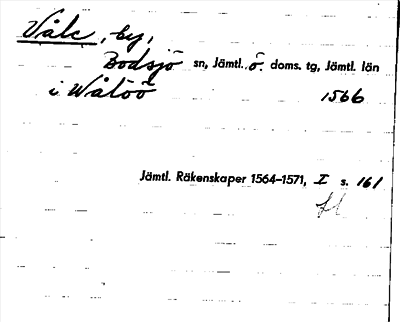 Våle, by,
Bodsjö sn, Jämtl. ö. doms. tg, Jämtl. län
i Wåloö 1566
Jämtl. Räkenskaper 1564–1571, I s. 161